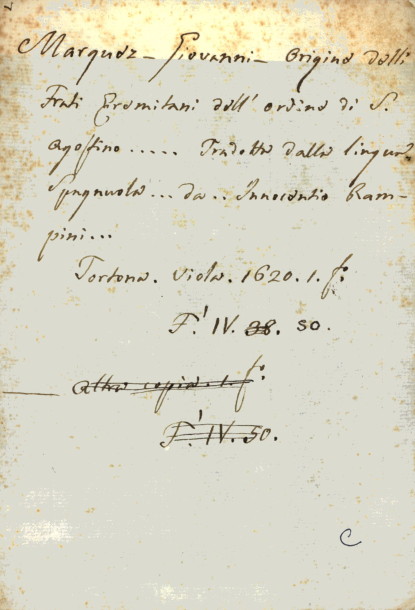 Marquez – Giovanni – Origine delli
Frati Eremitani dell' ordine di S.
Agostino ..... Tradotta dalla lingua
Spagnuola ... da .. Innocentio Ram-
pini...
Tortona. Viola. 1620. 1. f.º
F.' IV. 38. 50.
Altra copia. 1. f.º
F.' IV. 50.
C